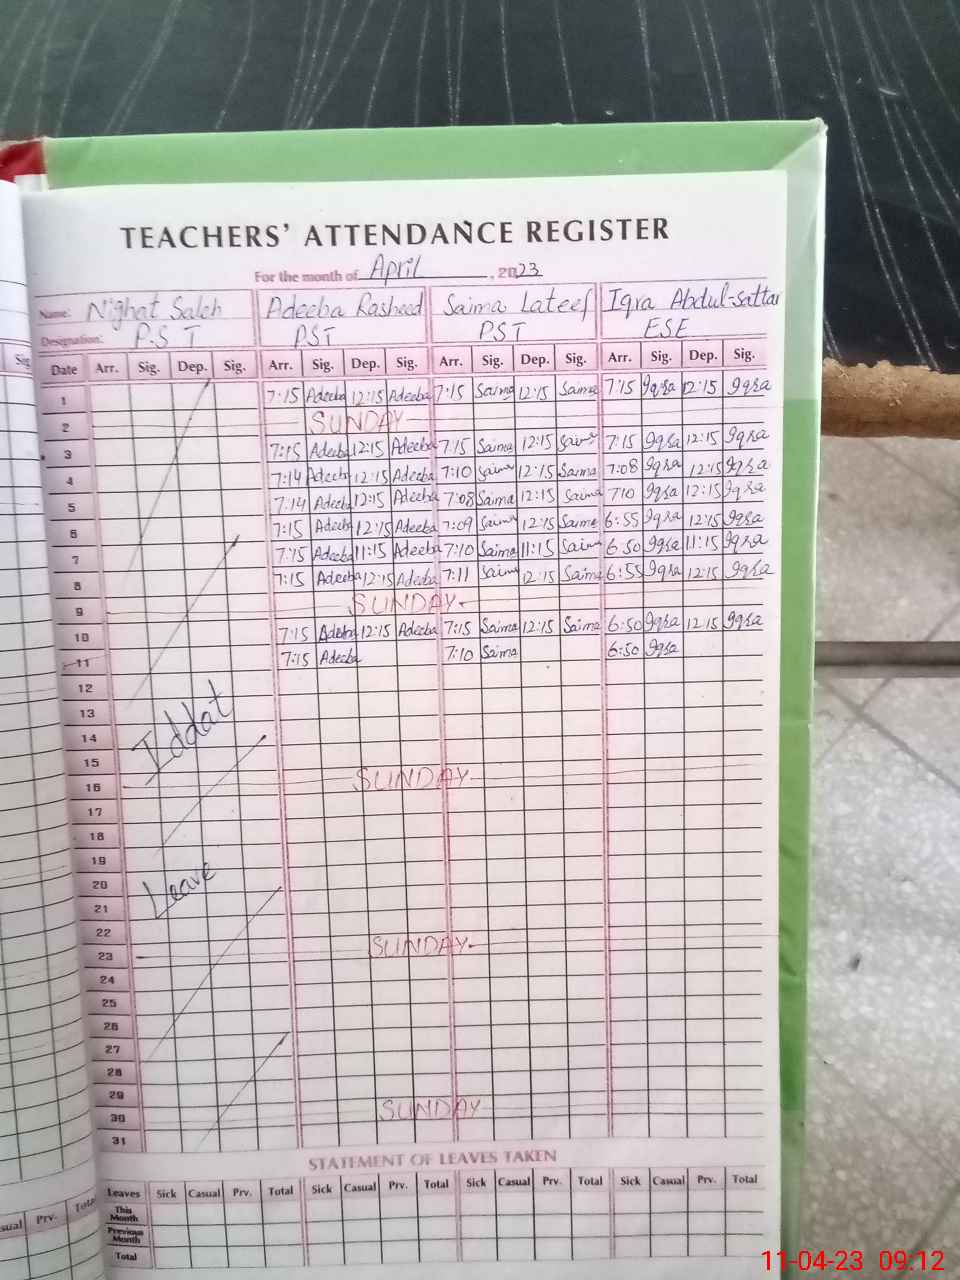 TEACHERS' ATTENDANCE REGISTER
For the month of April, 2023
Name: Nighat Saleh Adeeba Rasheed Saima Lateef Iqra Abdul-Sattar
Designation: P.S T PST PST ESE
Sig
Date Arr. Sig. Dep. Sig. Arr. Sig. Dep. Sig. Arr. Sig. Dep. Sig. Arr. Sig. Dep. Sig.
1 7:15 Adeeba 12:15 Adeeba 7:15 Saima 12:15 Saima 7:15 Iqra 12:15 Iqra
2 SUNDAY
3 7:15 Adeeba 12:15 Adeeba 7:15 Saima 12:15 Saima 7:15 Iqra 12:15 Iqra
4 7:14 Adeeba 12:15 Adeeba 7:10 Saima 12:15 Saima 7:08 Iqra 12:15 Iqra
5 7:14 Adeeba 12:15 Adeeba 7:08 Saima 12:15 Saima 710 Iqra 12:15 Iqra
6 7:15 Adeeba 12:15 Adeeba 7:09 Saima 12:15 Saima 6:55 Iqra 12:15 Iqra
7 7:15 Adeeba 11:15 Adeeba 7:10 Saima 11:15 Saima 6:50 Iqra 11:15 Iqra
8 7:15 Adeeba 12:15 Adeeba 7:11 Saima 12:15 Saima 6:55 Iqra 12:15 Iqra
9 SUNDAY
10 7:15 Adeeba 12:15 Adeeba 7:15 Saima 12:15 Saima 6:50 Iqra 12:15 Iqra
11 7:15 Adeeba 7:10 Saima 6:50 Iqra
12
13
14 Iddat
15
16 SUNDAY
17
18
19
20 Leave
21
22
23 SUNDAY
24
25
26
27
28
29
30 SUNDAY
31
STATEMENT OF LEAVES TAKEN
Leaves Sick Casual Prv. Total Sick Casual Prv. Total Sick Casual Prv. Total Sick Casual Prv. Total
This Month
Previous Month
Total
sual Prv. Total
11-04-23 09.12